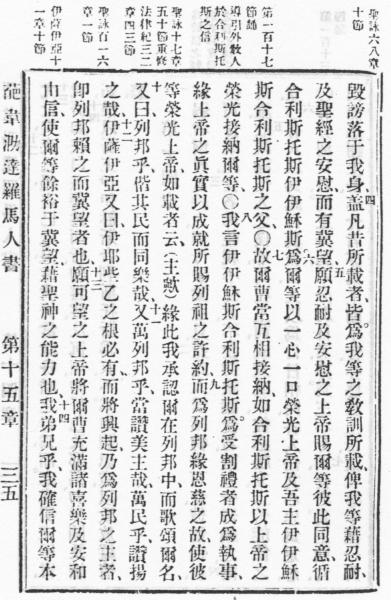 聖詠六八章
十節
第一百十七
導引外敎人
於合利斯托
斯之信
聖詠十七章
五十節重修
法律紀三二
章四三節
聖詠百一六
章一節
伊薩伊亞十
一章十節
毀謗落于我身、四蓋凡昔所載者、皆爲我等之敎訓所載、俾我等藉忍耐、
及聖經之安慰、而有冀望、五願忍耐及安慰之上帝、賜爾等彼此同意、循
合利斯托斯伊伊穌斯、六爲爾等以一心一口、榮光上帝、及吾主伊伊穌
斯合利斯托斯之父、〇七故爾曹當互相接納、如合利斯托斯以上帝之
榮光接納爾等、〇八我言伊伊穌斯合利斯托斯、爲受割禮者成爲執事、
緣上帝之眞實、以成就所賜列祖之許約、九而爲列邦緣恩慈之故、使彼
等榮光上帝、如載者云、(主歟)緣此我承認爾在列邦中、而歌頌爾名、
十又曰、列邦乎、偕其民而同樂哉、十一又萬列邦乎、當讚美主哉、萬民乎、讚揚
之哉、十二伊薩伊亞又曰、伊耶些乙之根必有、而將興起、乃爲列邦之主者、
卽列邦賴之而冀望者也、十三願可望之上帝、將爾曹充滿諸喜樂及安和
由信、使爾等餘裕于冀望、藉聖神之能力也、十四我弟兄乎、我確信爾等本
葩韋泐達羅馬人書 第十五章 三五